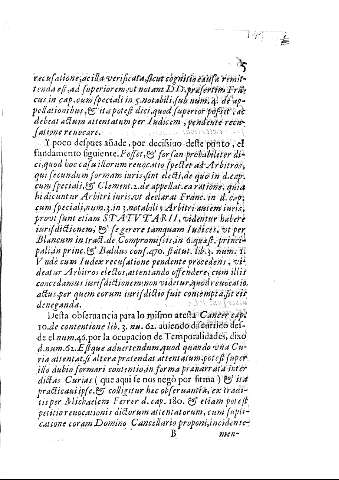 5
recusatione, ac illa verificata, sicut cognitio causæ remit-
tenda est, ad superiorem, vt notant DD. præsertim Frã-
cus in cap. cum speciali in 5. notabili, sub num. 4. de ap-
pellationibus, & ita potest dici, quod superior possit, ac
debeat actum attentatum per Iudicem, pendente recu-
satione revocare.
Y poco despues añade, por decisiuo deste punto, el
fundamento siguiente. Posset, & forsan probabiliter di-
ci, quod hoc casu illorum revocatio spectet ad Arbitros,
qui secundum formam iuris sunt electi, de quo in d. cap.
cum speciali, & Clement. 2. de appellat. ea ratione, quia
hi dicuntur Arbitri iuris, vt declarat Franc. in d. cap.
cum speciali, num. 3. in 3. notabili; Arbitri autem iuris,
prout sunt etiam STATVTARII, videntur habere
iurisdictionem, & se gerere tamquam Iudices, vt per
Blancum in tract. de Compromissis, in 6. quæst. princi-
pali, in princ. & Baldus cons. 470. statut. lib. 3. num. 1.
Vnde cum Iudex recusatione pendente procedens, vi-
deatur Arbitros electos, attentando offendere, cum illis
concedamus iurisdictionem non videtur, quod revocatio,
actus, per quem eorum iurisdictio fuit contempta, sit eis
deneganda.
Desta observancia para lo mismo atesta Cancer cap.
10. de contentione lib. 3. nu. 62. auiendo discurrido des-
de el num. 46. por la ocupacion de Temporalidades, dixo
d. num. 62. Estque advertendum, quod quando vna Cu-
ria attentat, si altera pretendat attentatum, potest super
illo dubio formari contentio, in forma prænarrata inter
dictas Curias (que aqui se nos negò por firma) & ita
practicavi ipse, & colligitur hec observantia, ex traditis
per Michaelem Ferrer d. cap. 180. & etiam potest
petitio revocationis dictorum attentatorum, cum suppli-
catione coram Domino Cancellario proponi, incidente-
B men-